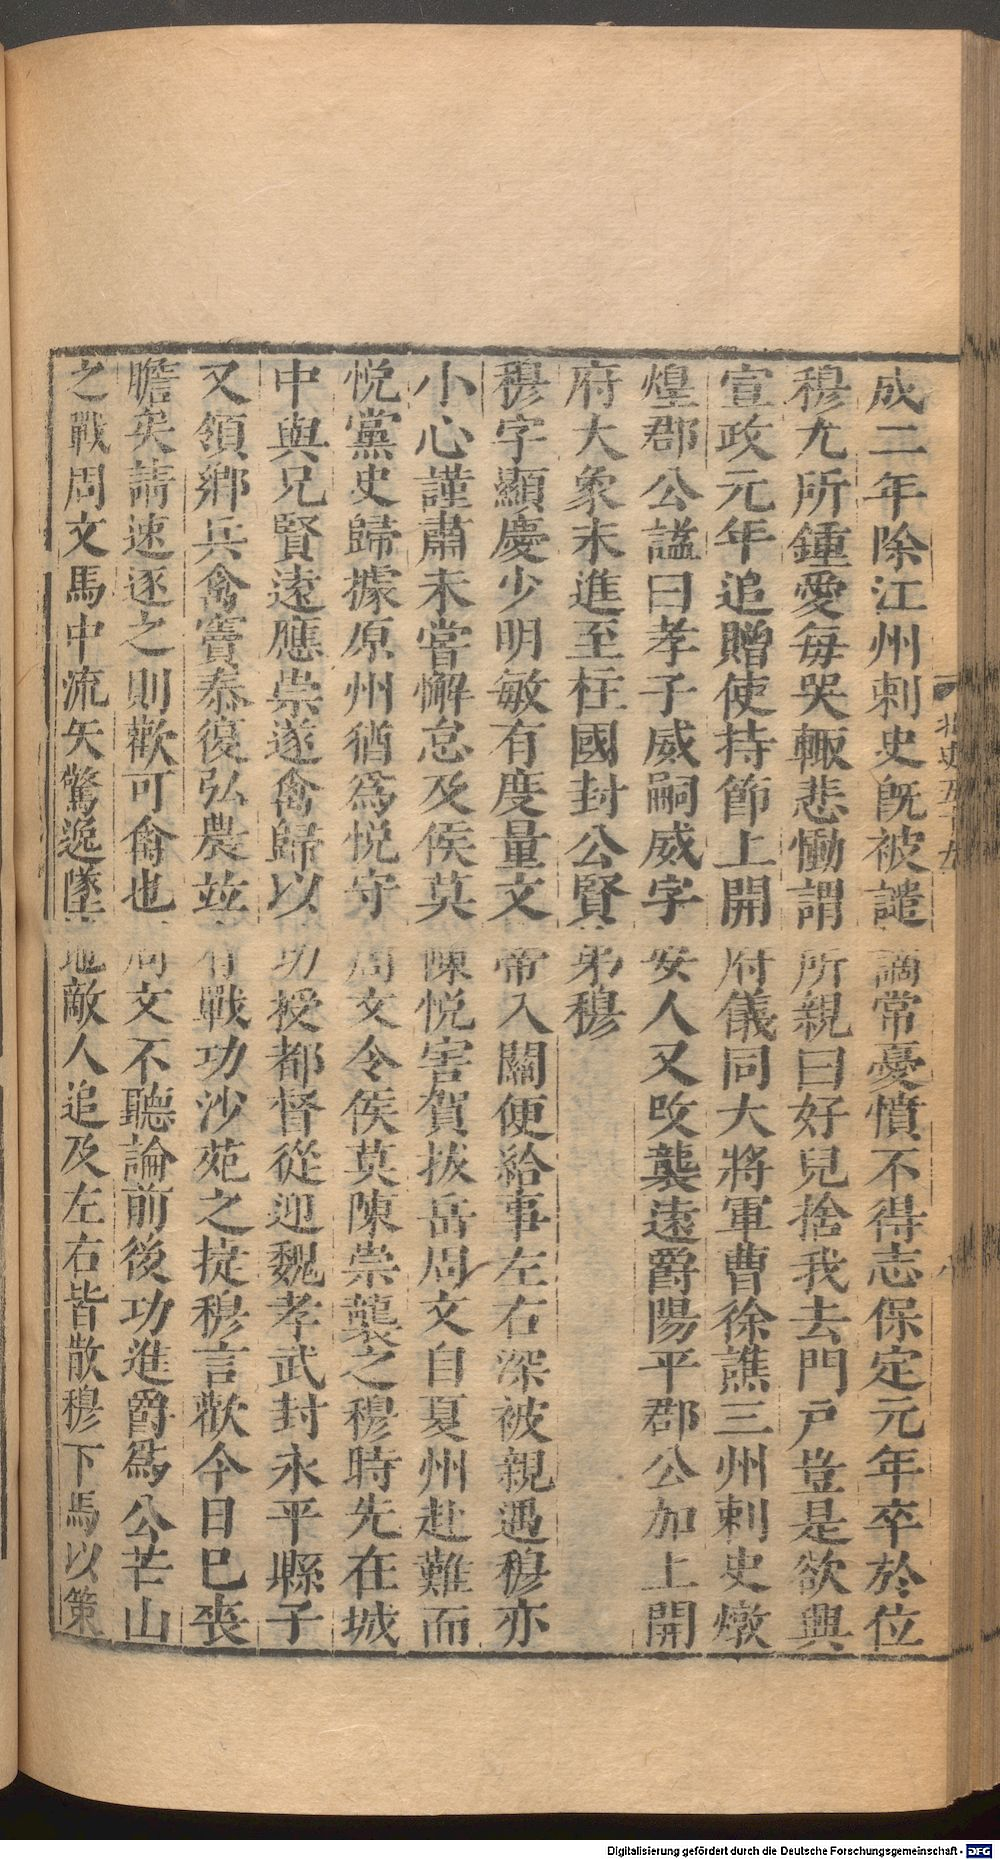 成二年除江州刺史旣被譴謫常憂憤不得志保定元年卒於位
穆尤所鍾愛每哭輒悲慟謂所親曰好兒捨我去門戸豈是欲興
宣政元年追贈使持節上開府儀同大將軍曹徐譙三州刺史燉
煌郡公諡曰孝子威嗣威字安人又改襲遠爵陽平郡公加上開
府大象末進至柱國封公賢弟穆
穆字顯慶少明敏有度量文帝入關便給事左右深被親遇穆亦
小心謹肅未嘗懈怠及侯莫陳悅害賀拔岳周文自夏州赴難而
悅黨史歸據原州猶爲悅守周文令侯莫陳崇襲之穆時先在城
中與兄賢遠應崇遂禽歸以功授都督從迎魏孝武封永平縣子
又領鄉兵禽竇泰復弘農並有戰功沙苑之捷穆言歡今日已喪
膽矣請速逐之則歡可禽也周文不聽論前後功進爵爲公芒山
之戰周文馬中流矢驚逸墜地敵人追及左右皆散穆下馬以策
北史五十九
八
Digitalisierung gefördert durch die Deutsche Forschungsgemeinschaft - DFG